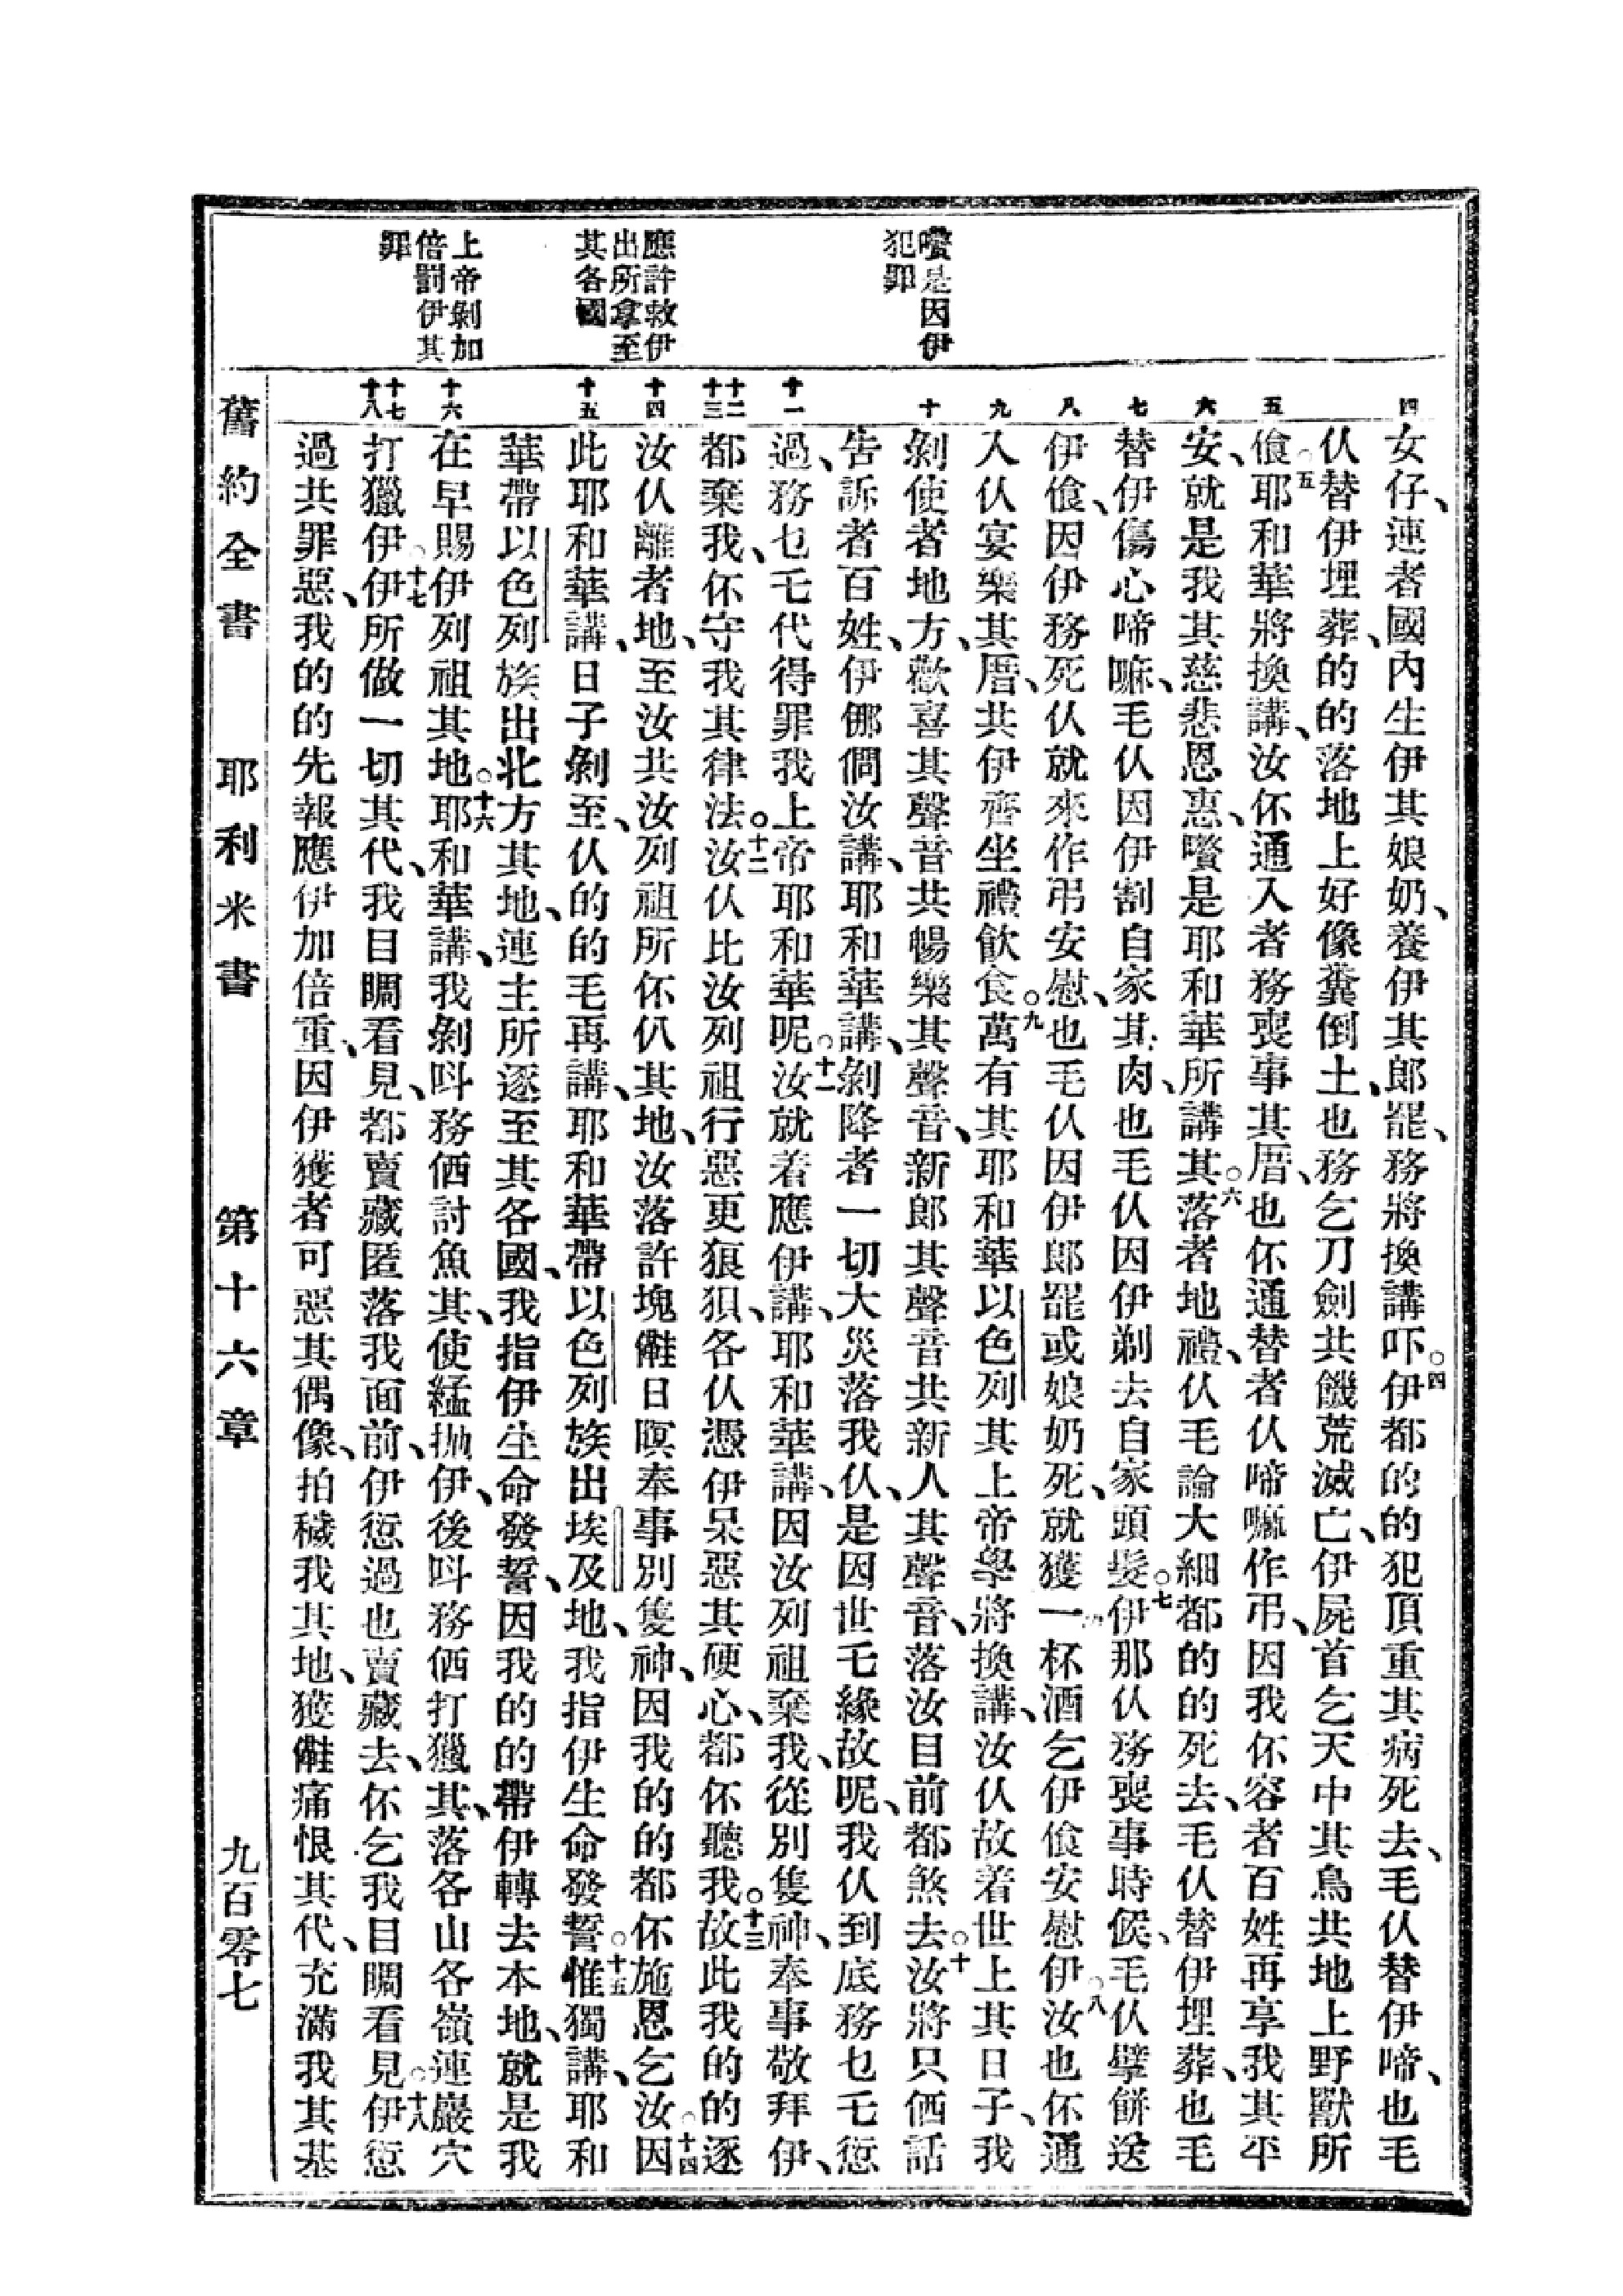 嚽是因伊
犯罪
應許救伊
出所拿至
其各國
上帝剝加
倍罰伊其
罪
四
五
六
七
八
九
十
十一
十二
十三
十四
十五
十六
十七
十八
女仔、連者國內生伊其娘奶、養伊其郎罷、務將換講吓○四伊都的的犯頂重其病死去、毛仈替伊啼、也毛
仈替伊埋葬、的的落地上好像糞倒土、也務乞刀劍共饑荒滅亡、伊屍首乞天中其鳥共地上野獸所
飡○五耶和華將換講、汝伓通入者務喪事其厝、也伓通替者仈啼嘛作弔、因我伓容者百姓再享我其平
安、就是我其慈悲恩惠、嚽是耶和華所講其○六落者地禮、仈毛論大細都的的死去、毛仈替伊埋葬、也毛
替伊傷心啼嘛、毛仈因伊割自家其肉、也毛仈因伊剃去自家頭髮○七伊那仈務喪事時候、毛仈擘餅送
伊飡、因伊務死仈就來作弔安慰、也毛仈因伊郎罷或娘奶死、就獲一杯酒乞伊飡安慰伊○八汝也伓通
入仈宴樂其厝、共伊齊坐禮飲食○九萬有其耶和華以色列其上帝學將換講、汝仈故着世上其日子、我
剝使者地方、歡喜其聲音共暢樂其聲音、新郎其聲音共新人其聲音、落汝目前都煞去○十汝將只仴話
告訴者百姓、伊㑚倜汝講、耶和華講、剝降者一切大災落我仈、是因世乇緣故呢、我仈到底務乜乇愆
過、務乜乇代得罪我上帝耶和華呢○十一汝就着應伊講、耶和華講、因汝列祖棄我、從別隻神、奉事敬拜伊、
都棄我、伓守我其律法○十二汝仈比汝列祖行惡更狼狽、各仈憑伊呆惡其硬心、都伓聽我○十三故此我的的逐
汝仈離者地、至汝共汝列祖所伓仈其地、汝落許塊㒕日暝奉事別隻神、因我的的都伓施恩乞汝○十四因
此耶和華講、日子剝至、仈的的毛再講、耶和華帶以色列族出埃及地、我指伊生命發誓○十五惟獨講、耶和
華帶以色列族、出北方其地、連主所逐至其各國、我指伊生命發誓、因我的的帶伊轉去本地、就是我
在早賜伊列祖其地○十六耶和華講、我剝呌務仴討魚其、使艋抛伊、後呌務仴打獵其、落各山各嶺連巖穴
打獵伊○十七伊所做一切其代、我目瞯看見、都賣藏匿落我面前、伊愆過也賣藏去、伓乞我目瞯看見○十八伊愆
過共罪惡、我的的先報應伊加倍重、因伊獲者可惡其偶像、拍穢我其地、獲㒕痛恨其代、充滿我其基
舊約全書　耶利米書　第十六章　九百零七